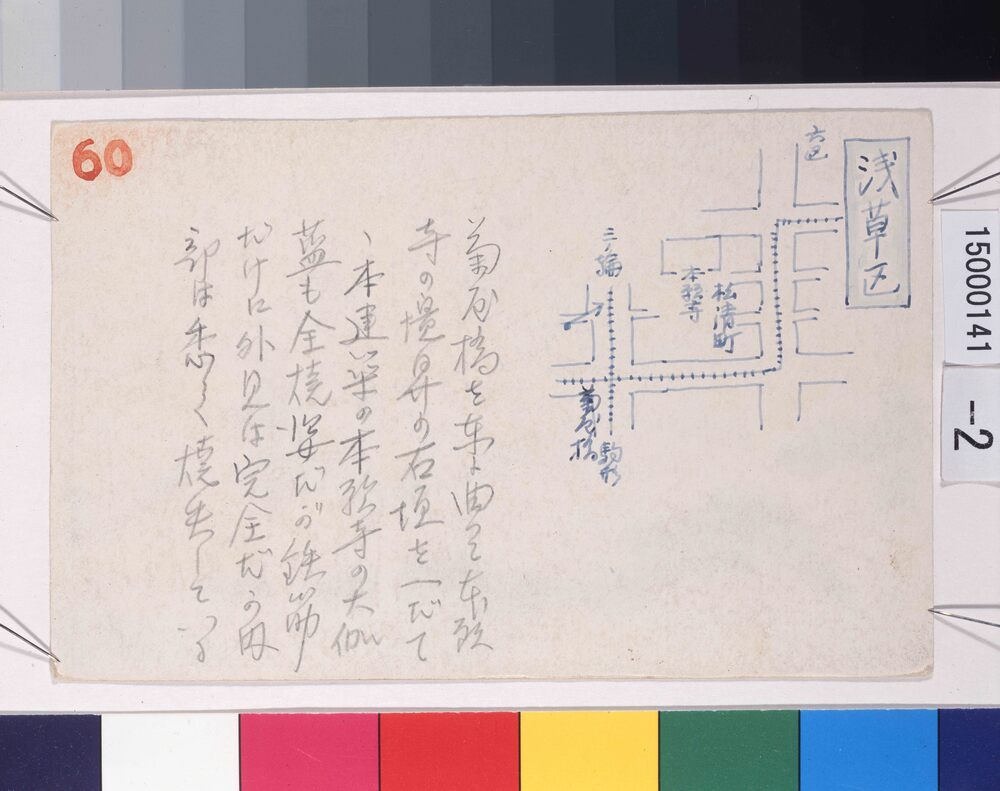 60
浅草区
六区
三ノ輪
松清町
本願寺
菊屋橋
駒形
菊屋橋を東に曲って本願
寺の境界の石垣をへだて
、本建築の本願寺の大伽
藍も全焼姿だが鉄筋
だけに外見は完全だが内
部は悉く焼失している
15000141
-2